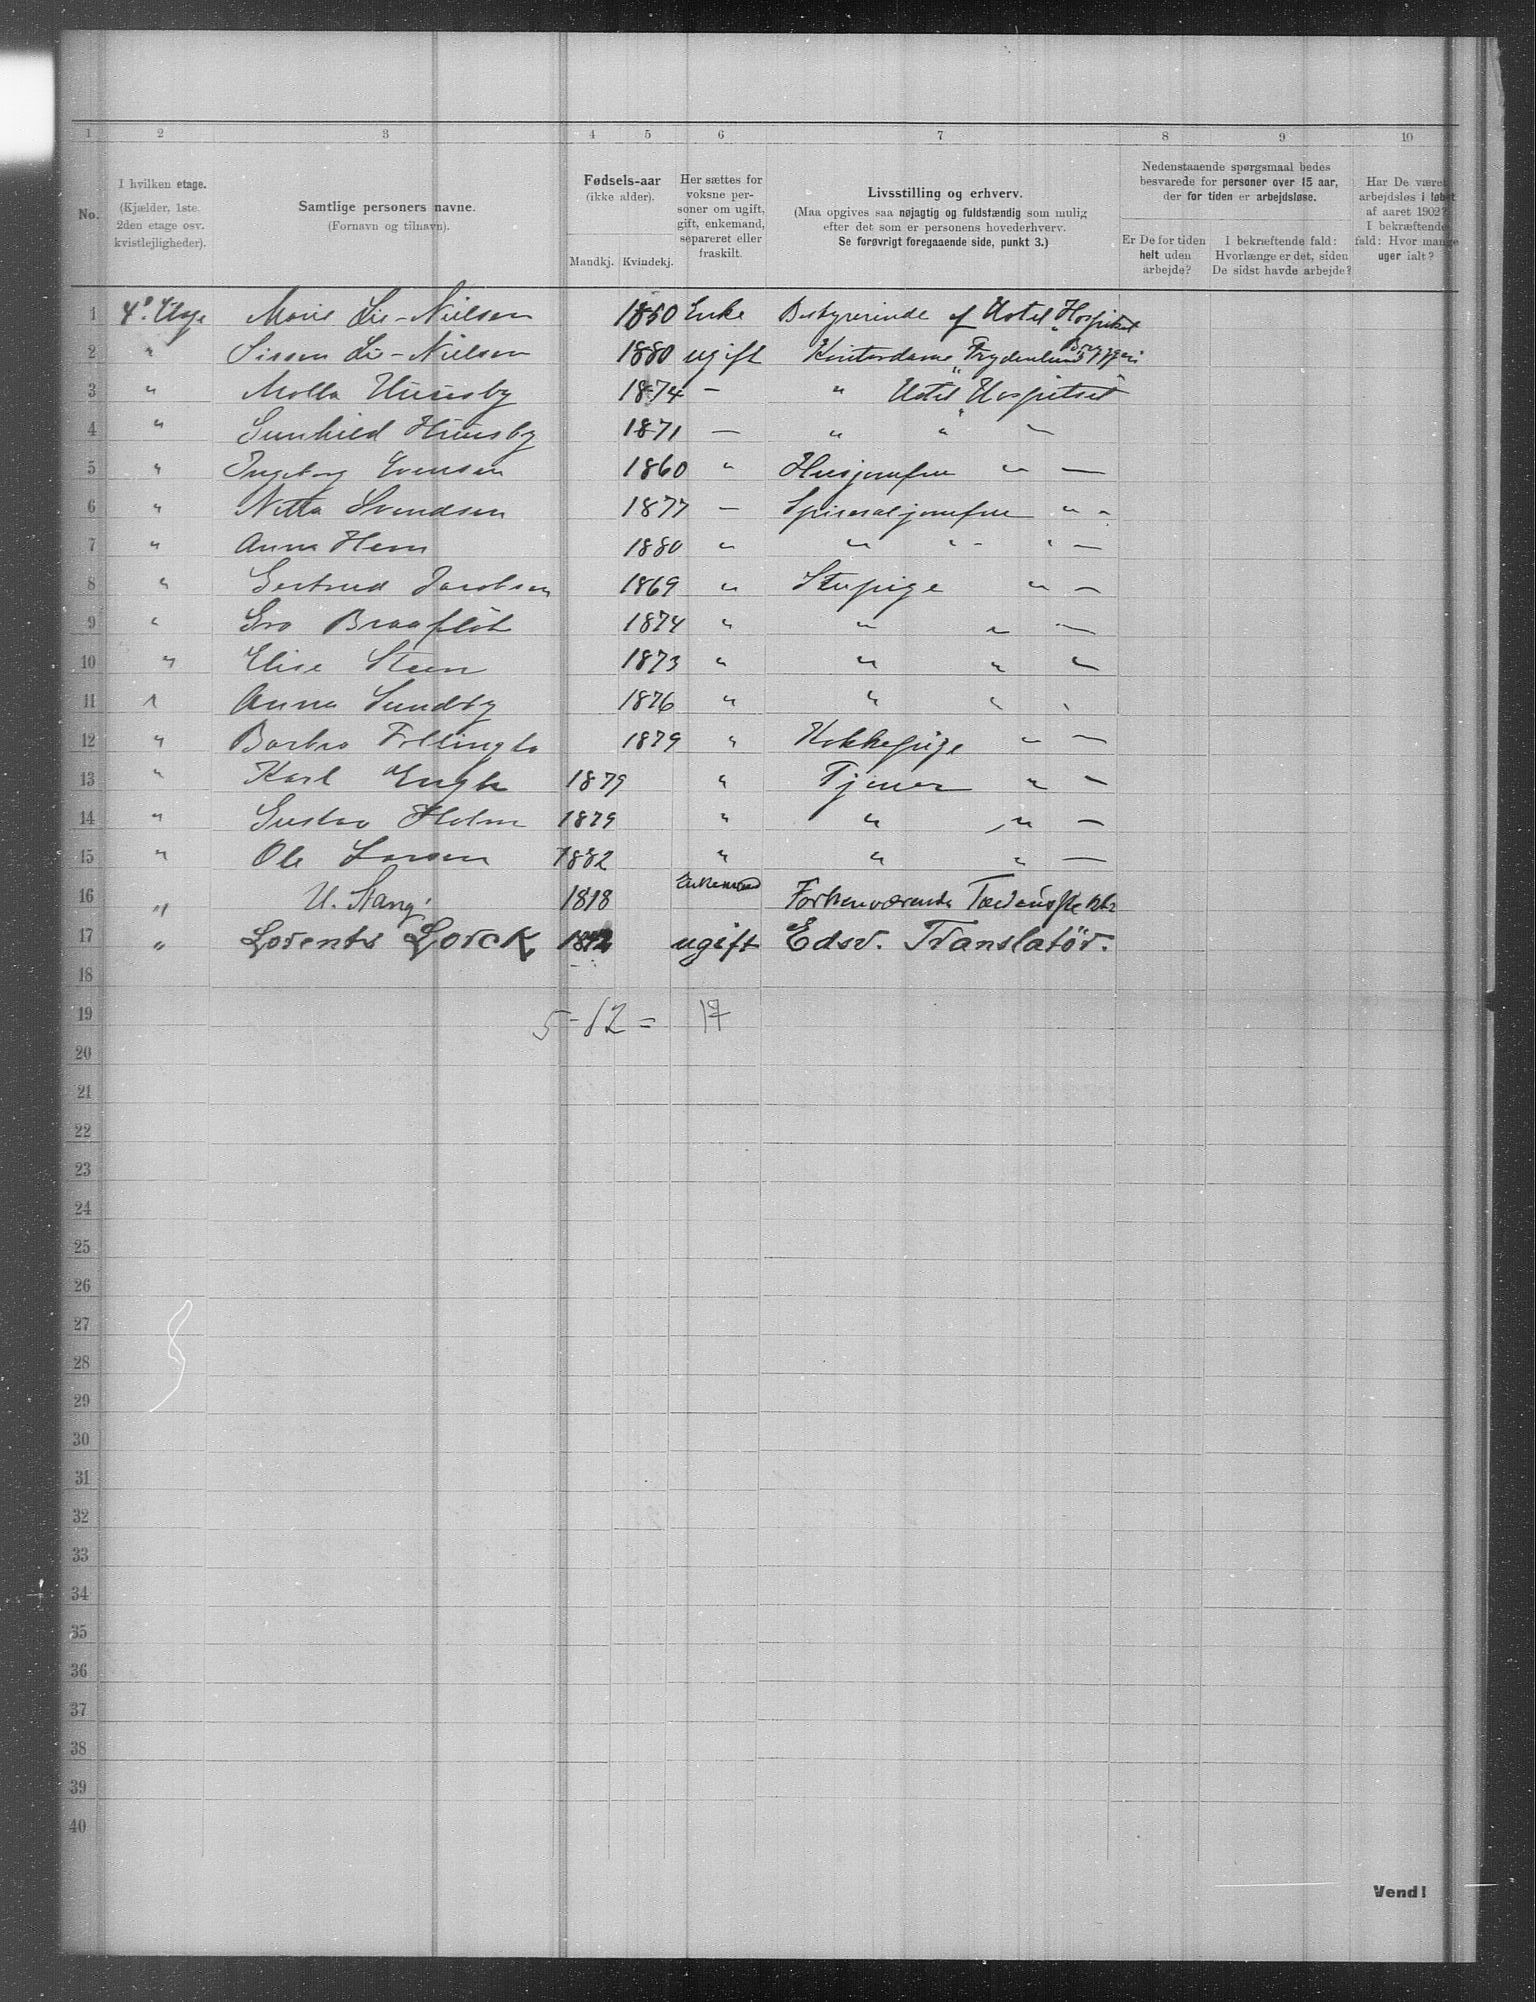 1 2 3 4 5 6 7 8 9 10
No.
I hvilken etage.
(Kjælder, 1ste.
2den etage osv.
kvistlejligheder).
Samtlige personers navne.
(Fornavn og tilnavn).
Fødsels-aar
(ikke alder).
Mandkj. Kvindekj.
Her sættes for
voksne per-
soner om ugift,
gift, enkemand,
separeret eller
fraskilt.
Livsstilling og erhverv.
(Maa opgives saa nøjagtig og fuldstændig som mulig
efter det som er personens hovederhverv.
Se forøvrigt foregaaende side, punkt 3.)
Nedenstaaende spørgsmaal bedes
besvarede for personer over 15 aar,
der for tiden er arbejdsløse.
Er De for tiden
helt uden
arbejde?
I bekræftende fald:
Hvorlænge er det, siden
De sidst havde arbejde?
Har De været
arbejdsløs i løbet
af aaret 1902?
I bekræftende
fald: Hvor mange
uger ialt?
1 4° Etage Marie Lie-Nielsen 1850 Enke Bestyrerinde af Hotel Hospitset
2 " Sissen Lie-Nielsen 1880 ugift Kontordame Frydenlund Bryggeri
3 " Molla Huusby 1874 — " Hotel Hospitset
4 " Gunhild Huusby 1871 — " " —
5 " Ingeborg Evensen 1860 " Husjomfru " —
6 " Nilla Svendsen 1877 — Spisesaljomfru " "
7 " Anna Hem 1880 " " " - " —
8 " Gertrud Jacobsen 1869 " Stupige " —
9 " Gro Braaflåt 1874 " " " —
10 " Elise Steen 1873 " " " "
11 " Anna Sundby 1876 " " " "
12 " Barbro 1879 " Kokkepige " —
13 " Karl Engh 1879 " Tjener " —
14 " Gustav Holm 1879 " " " —
15 " Ole Larsen 1882 " " " —
16 " U. Stang 1818 Enkemand Forhenværende
17 " Lorents Lorck ugift Edsv. Translatör.
18
19 5-12 = 17
20
21
22
23
24
25
26
27
28
29
30
31
32
33
34
35
36
37
38
39
40
Vend!